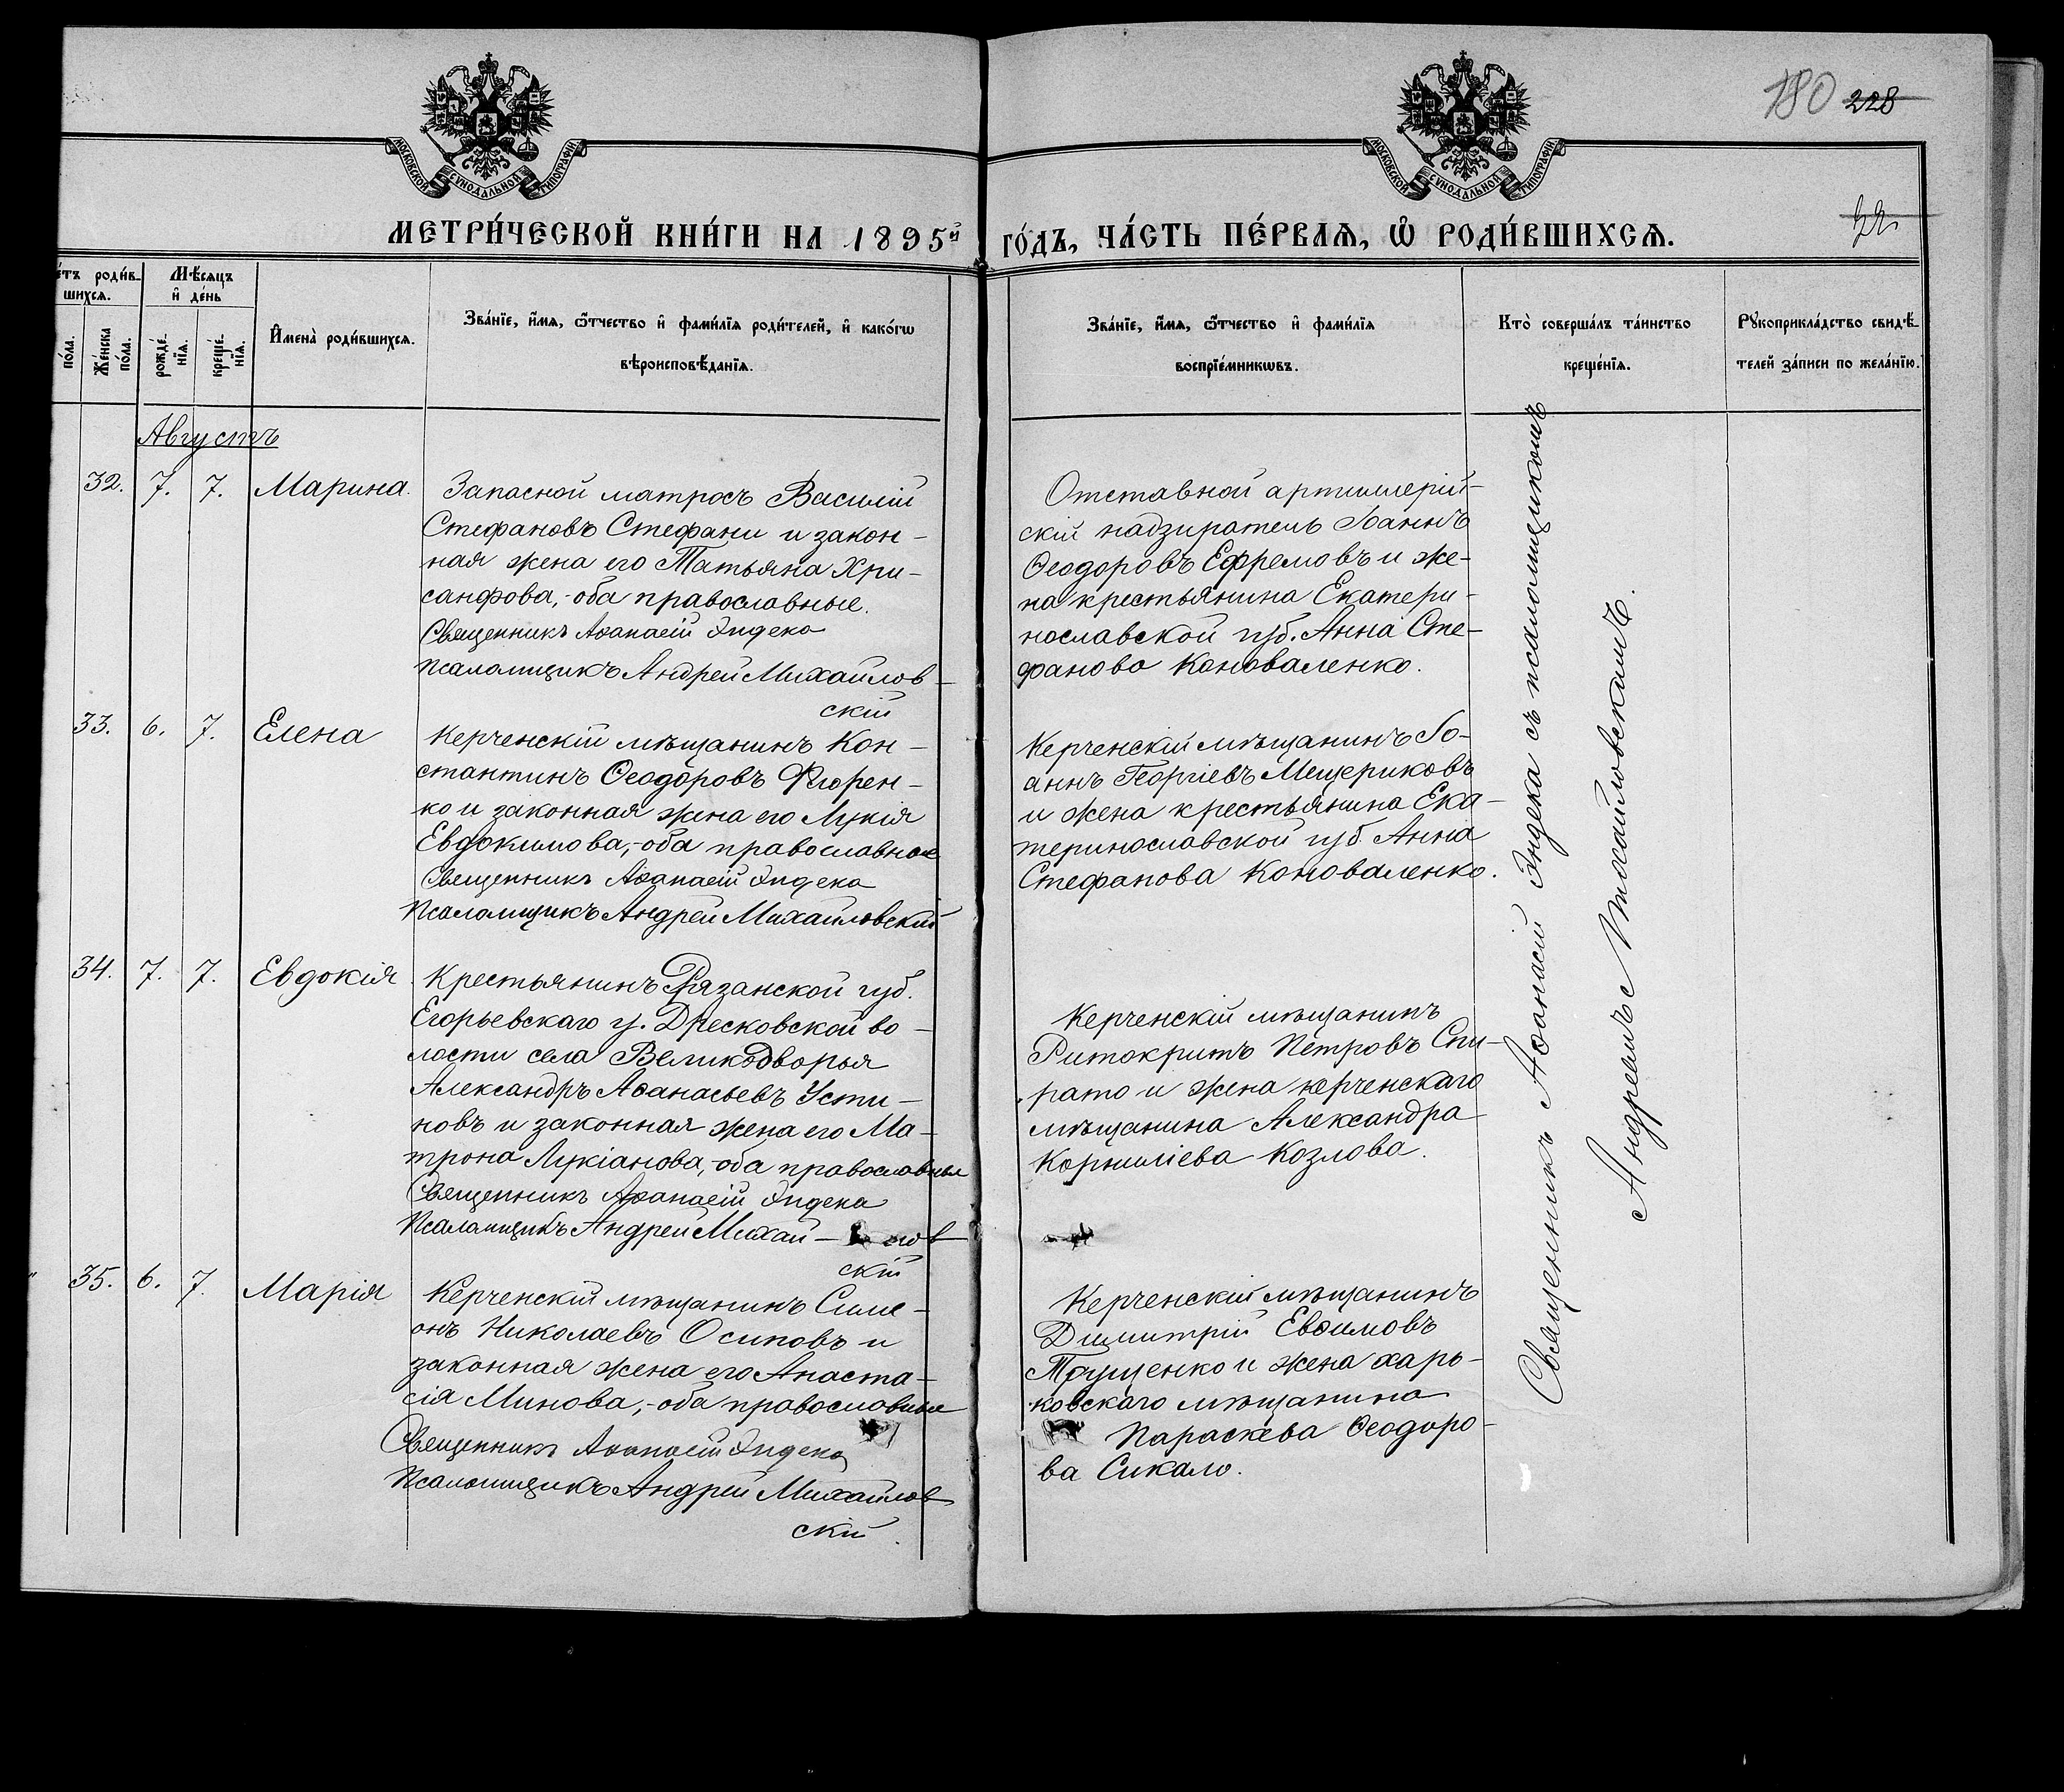 180 228
МОСКОВСКОЙ СУНОДАЛЬНОЙ ТИПОГРАФІИ
МОСКОВСКОЙ СУНОДАЛЬНОЙ ТИПОГРАФІИ
МЕТРИ́ЧЕСКОЙ КНИ́ГИ НА 1895й ГО́ДЪ, ЧА́СТЬ ПЕ́РВАѦ, Ѡ҆ РОДИ́ВШИХСѦ.
е́тъ роди́в-
шихсѧ.
по́ла.
Же́нска по́ла.
Мѣ́сяцъ
и҆ де́нь
рожде́-
нїѧ.
креще́-
нїѧ.
И҆мена̀ роди́вшихсѧ.
Зва́нїе, и҆́мѧ, ѻ҆́тчество и҆ фами́лїѧ роди́телей, и҆ како́гѡ
вѣроисповѣ́данїѧ.
Зва́нїе, и҆́мѧ, ѻ҆́тчество и҆ фами́лїѧ
воспрїе́мникѡвъ.
Кто̀ соверша́лъ та́инство
креще́нїѧ.
Рꙋкоприкла́дство свидѣ́-
телей за́писи по жела́нїю.
Августъ
32. 7. 7. Марина.
Запасной матросъ Василій
Стефановъ Стефани и закон-
ная жена его Татьяна Хри-
санфова,-оба православные.
Священникъ Аѳанасій Эндека
Псаломщикъ Андрей Михайлов-
скій
Отставной артиллерій-
скій надзиратель Іоаннъ
Ѳеодоровъ Ефремовъ и же-
на крестьянина Екатери-
нославской губ. Анна Сте-
фанова Коноваленко.
33. 6. 7. Елена
Керченскій мѣщанинъ Кон-
стантинъ Ѳеодоровъ Фіорен-
ко и законная жена его Лукія
Евдокимова,-оба православные
Священникъ Аѳанасій Эндека
Псаломщикъ Андрей Михайловскій
Керченскій мѣщанинъ Іо-
аннъ Георгіевъ Мещериковъ
и жена крестьянина Ека-
теринославской губ. Анна
Стефанова Коноваленко.
34. 7. 7. Евдокія.
Крестьянинъ Рязанской губ.
Егорьевскаго у. Дресковской во-
лости села Великодворья
Александръ Аѳанасьевъ Усти-
новъ и законная жена его Ма-
трона Лукіанова,-оба православные
Священникъ Аѳанасій Эндека
Псаломщикъ Андрей Михай- лов-
скій
Керченскій мѣщанинъ
Ритокритъ Петровъ Спи-
рато и жена керченскаго
мѣщанина Александра
Корниліева Козлова.
35. 6. 7. Марія
Керченскій мѣщанинъ Симе-
онъ Николаевъ Осиповъ и
законная жена его Анаста-
сія Минова,-оба православные
Священникъ Аѳанасій Эндека
Псаломщикъ Андрей Михайлов
скій.
Керченскій мѣщанинъ
Димитрій Евѳимовъ
Трущенко и жена харь-
ковскаго мѣщанина
Параскева Ѳеодоро-
ва Сикало.
Священникъ Аѳанасій Эндека съ псаломщикомъ
Андреемъ Михайловскимъ.